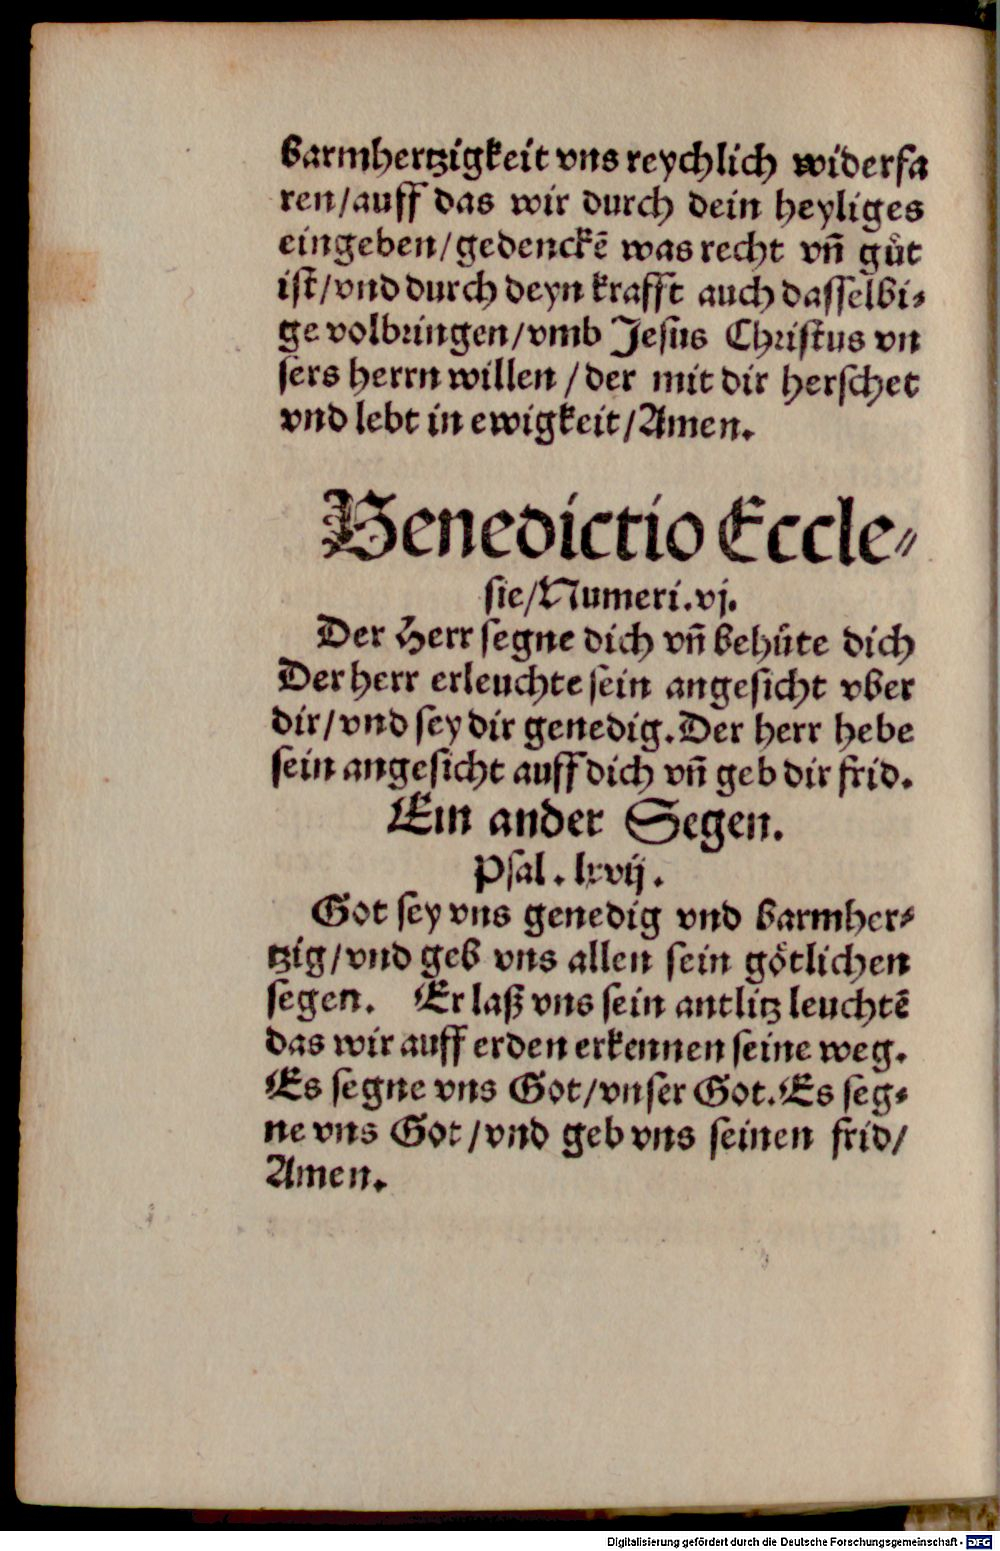 barmhertzigkeit vns reychlich widerfa
ren/auff das wir durch dein heyliges
eingeben/gedenckē was recht vñ gůt
ist/vnd durch deyn krafft auch dasselbi⸗
ge volbringen/vmb Jesus Christus vn
sers herrn willen/der mit dir herschet
vnd lebt in ewigkeit/Amen.
Benedictio Eccle⸗
sie/Numeri.vj.
Der Herr segne dich vñ behůte dich
Der herr erleuchte sein angesicht vber
dir/vnd sey dir genedig.Der herr hebe
sein angesicht auff dich vñ geb dir frid.
Ein ander Segen.
Psal. lxvij.
Got sey vns genedig vnd barmher⸗
tzig/vnd geb vns allen sein goͤtlichen
segen. Er laß vns sein antlitz leuchtē
das wir auff erden erkennen seine weg.
Es segne vns Got/vnser Got.Es seg⸗
ne vns Got/vnd geb vns seinen frid/
Amen.
Digitalisierung gefördert durch die Deutsche Forschungsgemeinschaft - DFG